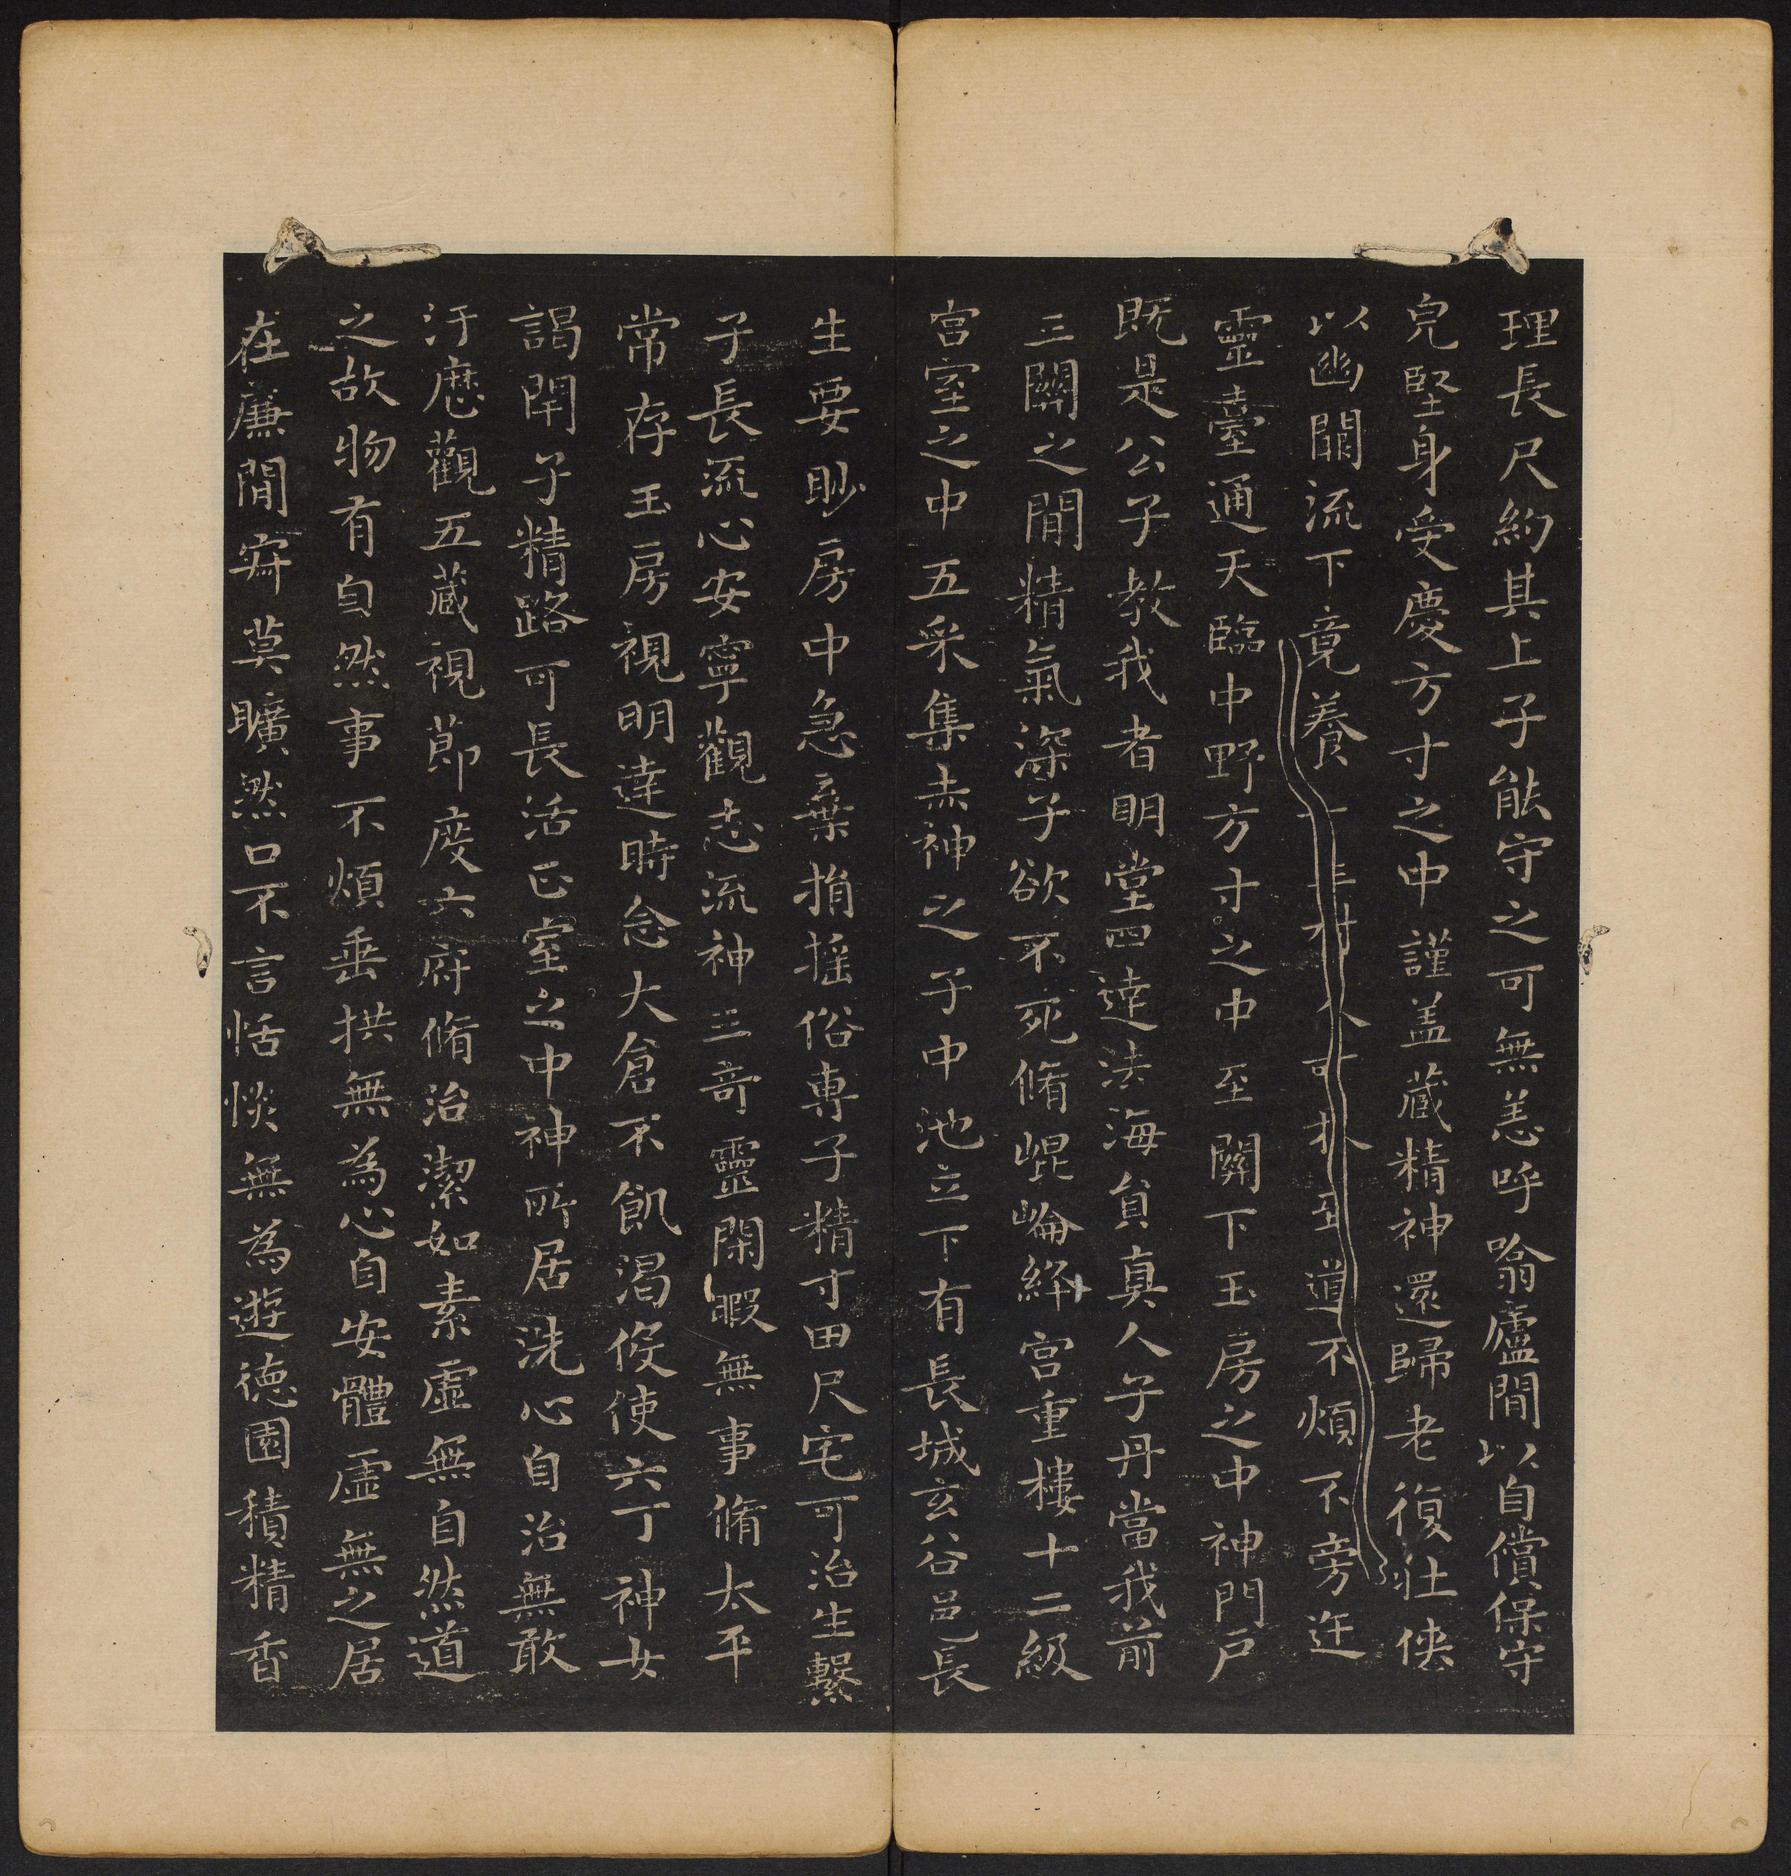 理長尺約其上子能守之可無恙呼噏廬間以自償保守
皃堅身受慶方寸之中謹盖藏精神還歸老復壯俠
以幽闕流下竟養至道不煩不旁迕
靈臺通天臨中野方寸之中至關下玉房之中神門戶
既是公子教我者明堂四達法海負真人子丹當我前
三關之間精氣深子欲不死脩崐崘絳宮重樓十二級
宮室之中五采集赤神之子中池立下有長城玄谷邑長
生要眇房中急棄捐搖俗專子精寸田尺宅可治生繫
子長流心安寧觀志流神三奇靈閑暇無事脩太平
常存玉房視明達時念大倉不飢渴侯使六丁神女
謁閇子精路可長活正室之中神所居洗心自治無敢
汙歷觀五藏視節度六府脩治潔如素虛無自然道
之故物有自然事不煩垂拱無為心自安體虛無之居
在廉間寂莫曠然口不言恬惔無為遊德園積精香